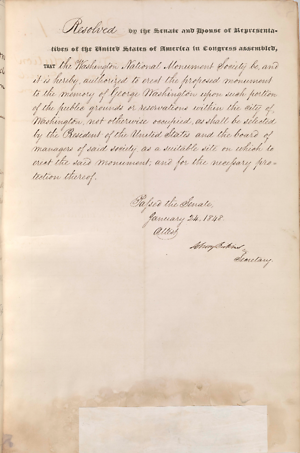 Resolved by the Senate and House of Representa-
tives of the United States of America in Congress assembled,
THAT the Washington National Monument Society be, and
it is hereby, authorized to erect the proposed monument
to the memory of George Washington upon such portion
of the public grounds or reservations within the city of
Washington, not otherwise occupied, as shall be selected
by the President of the United States and the board of
managers of said society as a suitable site on which to
erect the said monument, and for the necessary pro-
tection thereof.
Passed the Senate,
January 24, 1848.
Attest,
Secretary